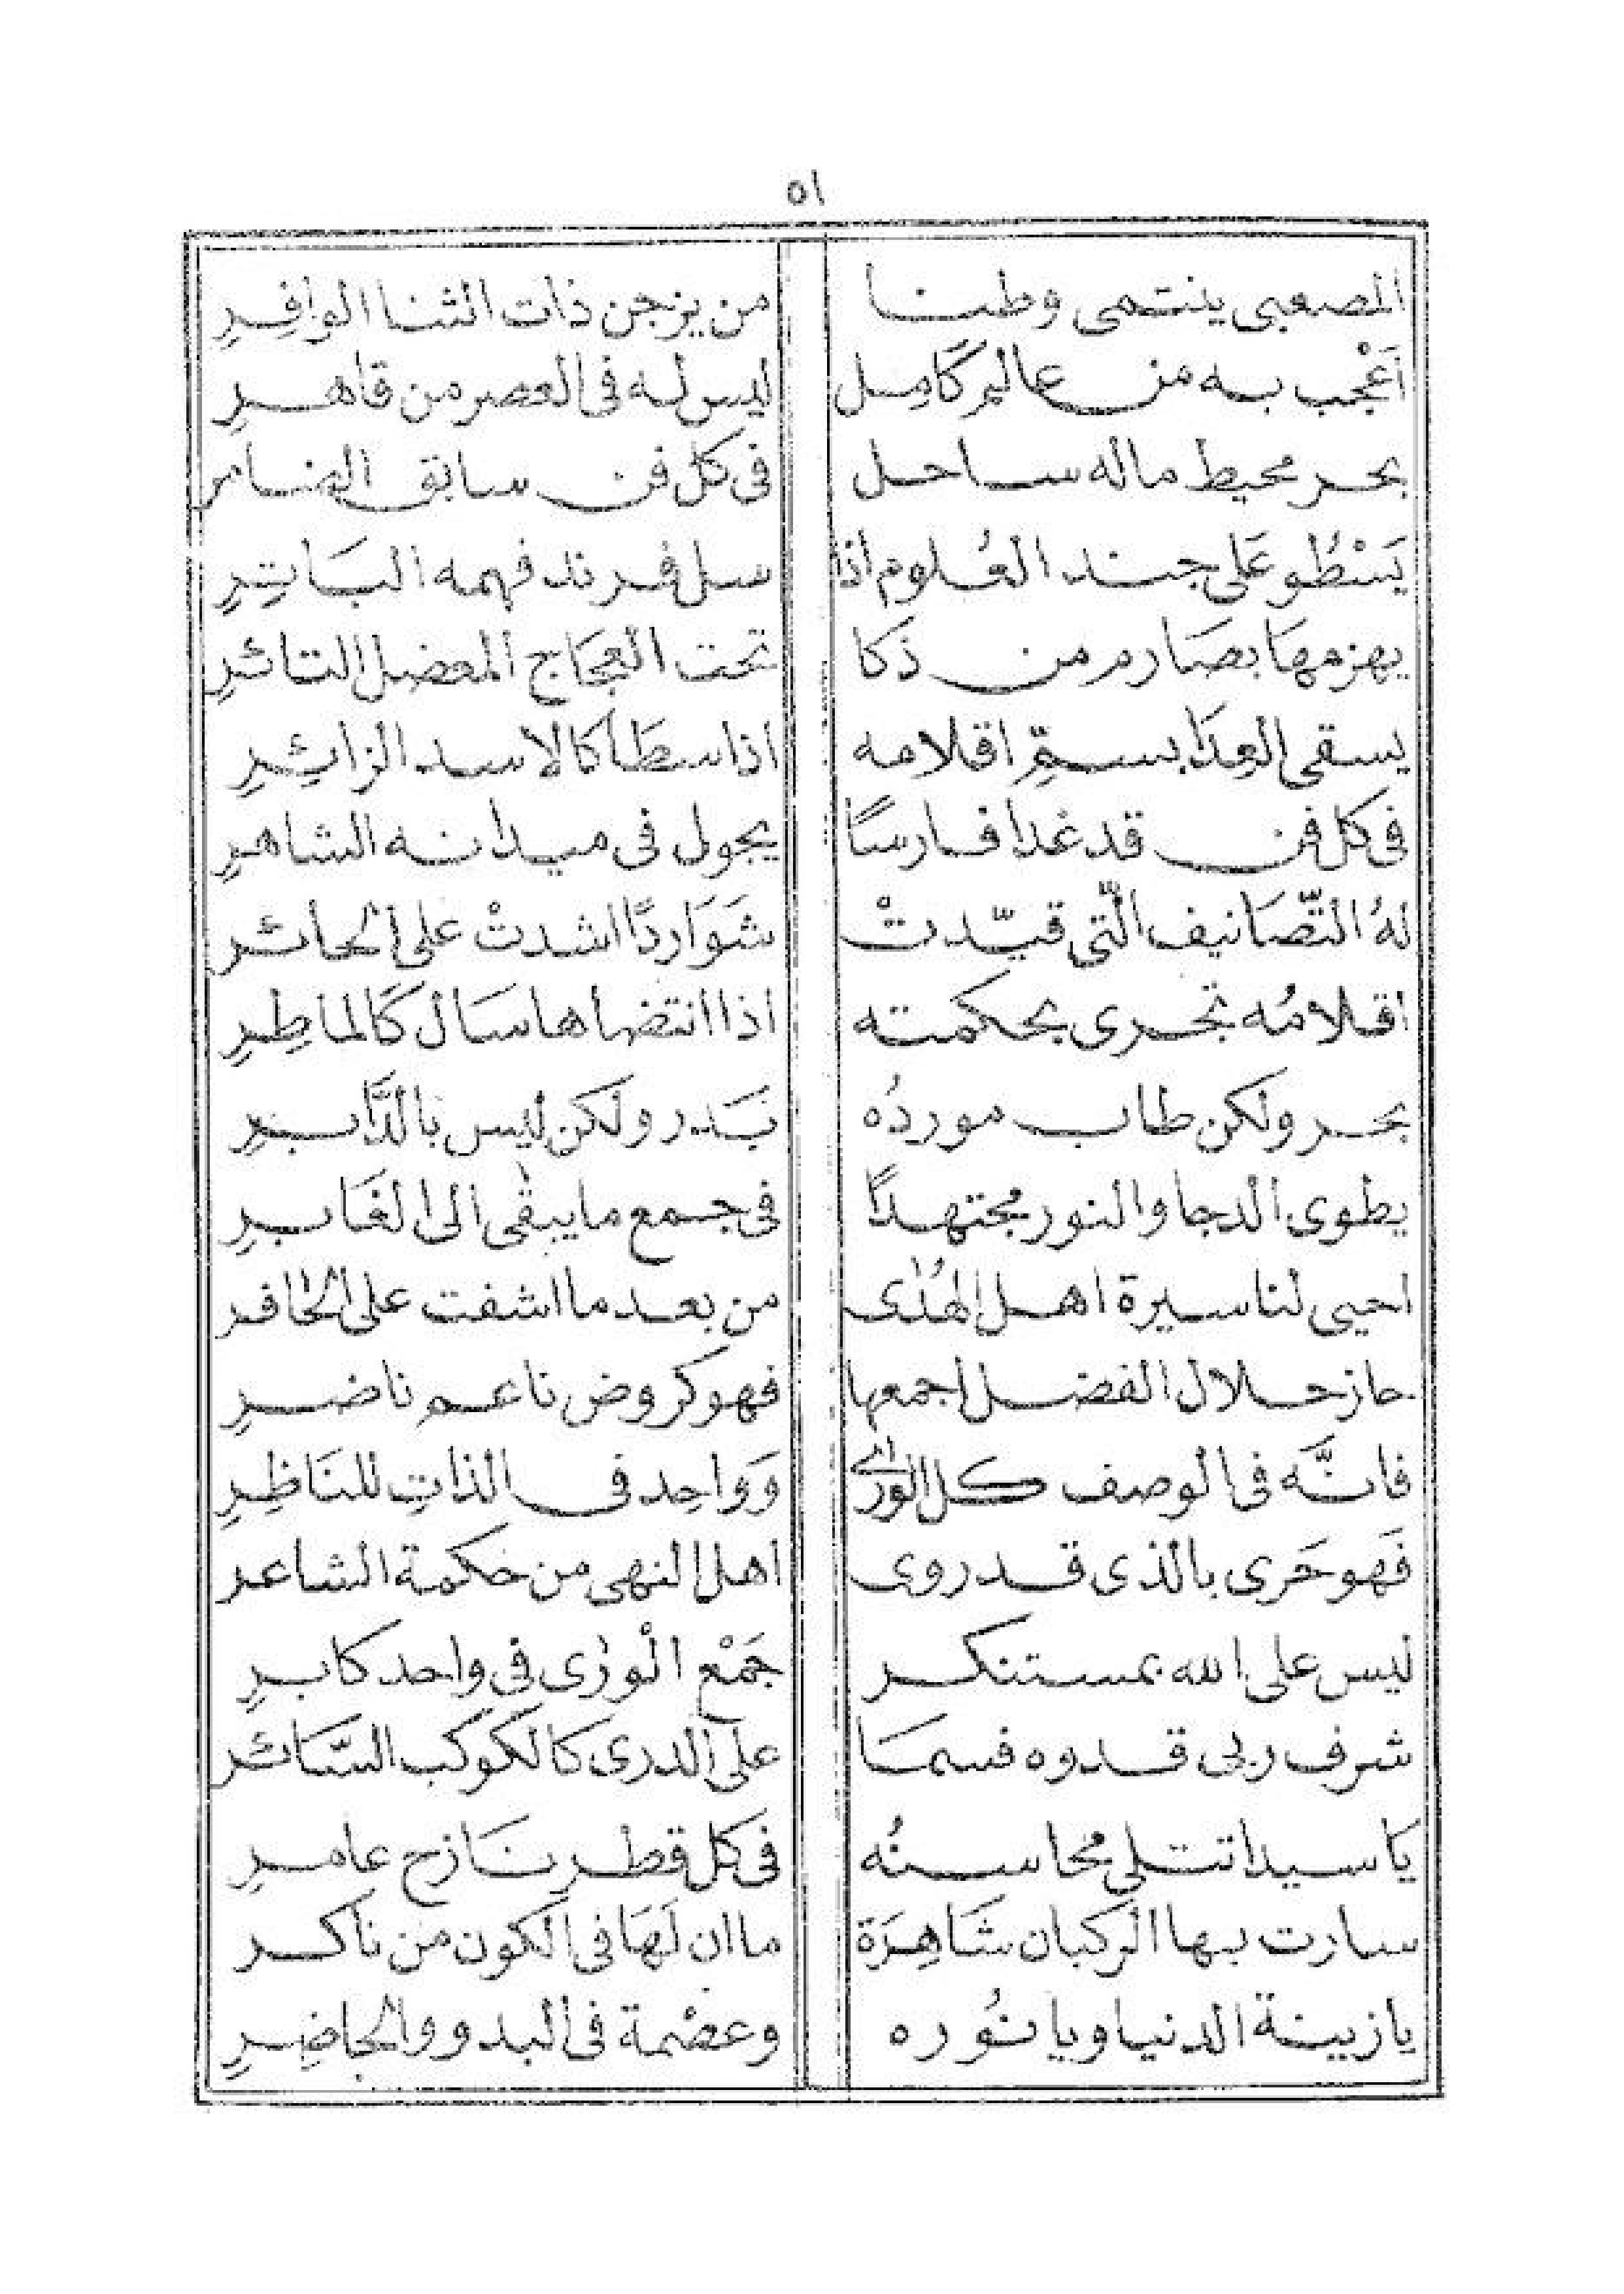 ٥١
المصعبى ينتمى وطنا من يزجن ذات الثنا الوافِرِ
أَعْجب به من عالم كَامِل ليس له فى العصر من قاهرِ
بحر محيط ماله ساحل فى كل فن سابق الضامر
يَسْطُو عَلى جند العُلوم اذا سل فُرند فهمه البَاتِرِ
يهزمها بصَارم من ذَكا تحت العجَاج المعضل الثائرِ
يسقى العِدَا بسمِّ اقلامه اذا سطَا كالاسد الزائِرِ
فى كل فن قد غدا فارسًا يجول فى ميدانه الشاهرِ
لهُ التّصَانيف الّتى قيّدتْ شَوَاردًا اشدتْ على الحائر
اقلامُه تجرى بحكمته اذا انتضاها سَال كَالماطِرِ
بحر ولكن طاب موردُه بَدر ولكن ليس بالدَّابرِ
يطوى الدجا والنور مجتهدًا فى جمع ما يبقى الى الغَابرِ
احيى لنا سيرة اهل الهُدٰى من بعد ما اشفت على الحافر
حاز حلال الفضل اجمعها فهو كروض ناعم ناضرِ
فانَّه فى الوصف كل الورٰى وَوَاحِد فى الذاتِ للنَاظِرِ
فَهو حَرى بالذى قد روى اهل النهى من حكمة الشاعر
ليس على الله بمستنكر جَمْع الْورٰى فى واحد كابرِ
شرف ربى قدوه فسمَا على الدرى كالكوكب السَّائر
يَا سيدا تتلى محاسنُه فى كل قطر نَازح عامرِ
سارت بها الركبان شَاهِرَة ما ان لَهَا فى الكون من ناكر
يا زينة الدنيا ويا نُوره وعصْمة فى البدو والحَاضِرِ